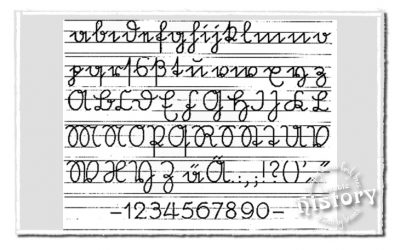 abcdefghijklmno
pqrſsßtuvwxyz
ABCDEFGHIJKL
MNOPQRSTUV
WXYZ äÄ.:,;!?()'"
-1234567890-
history